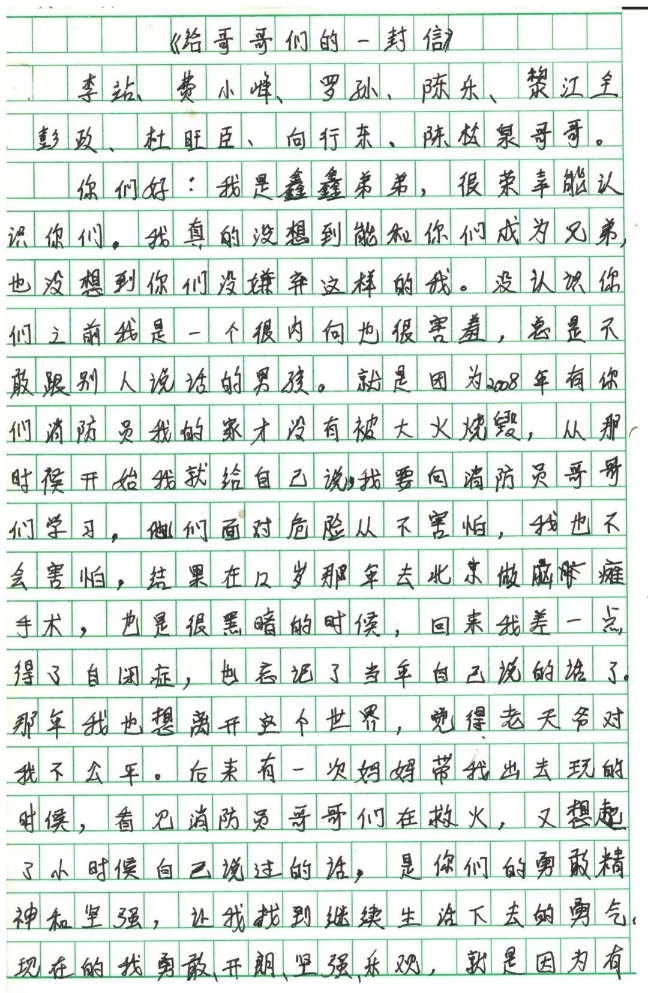 《给哥哥们的一封信》
李站、费小峰、罗孙、陈乐、黎江全
彭政、杜旺臣、向行东、陈松泉哥哥。
你们好：我是鑫鑫弟弟，很荣幸能认
识你们。我真的没想到能和你们成为兄弟，
也没想到你们没嫌弃这样的我。没认识你
们之前我是一个很内向也很害羞，总是不
敢跟别人说话的男孩。就是因为2008年有你
们消防员我的家才没有被大火烧毁，从那
时候开始我就给自己说，我要向消防员哥哥
们学习，他们面对危险从不害怕，我也不
会害怕，结果在12岁那年去北京做脑瘫
手术，也是很黑暗的时候，回来我差一点
得了自闭症，也忘记了当年自己说的话了。
那年我也想离开这个世界，觉得老天爷对
我不公平。后来有一次妈妈带我出去玩的
时候，看见消防员哥哥们在救火，又想起
了小时候自己说过的话，是你们的勇敢精
神和坚强，让我找到继续生活下去的勇气。
现在的我勇敢、开朗、坚强、乐观，就是因为有